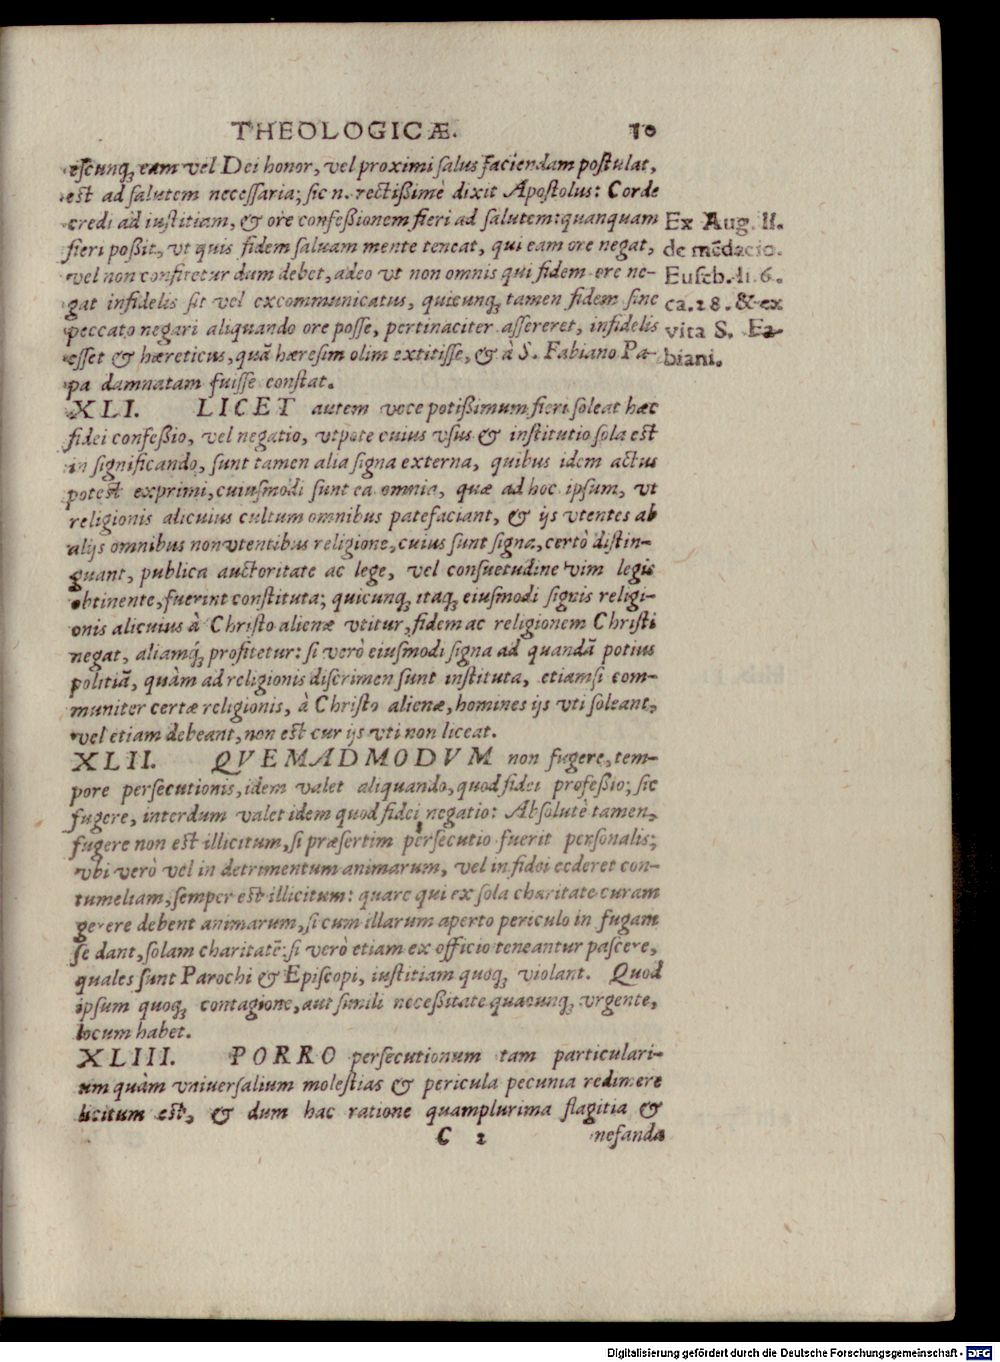 THEOLOGICÆ. 10
escunq́, eam vel Dei honor, vel proximi salus faciendam postulat,
est ad salutem necessaria; sic n. rectißimè dixit Apostolus: Corde
credi ad iustitiam, & ore confeßionem fieri ad salutem: quanquam
fieri poßit, vt quis fidem saluam mente teneat, qui eam ore negat,
vel non confitetur dum debet, adeo vt non omnis qui fidem ore ne-
gat infidelis sit vel excommunicatus, quicunq́, tamen fidem sine
peccato negari aliquando ore posse, pertinaciter assereret, infidelis
esset & hæreticus, quã hæresim olim extitisse, & à S. Fabiano Pa-
pa damnatam fuisse constat.
Ex Aug. II.
de mẽdacio.
Euseb. li. 6.
ca. 28. & ex
vita S. Fa-
biani.
XLI. LICET autem voce potißimum fieri soleat hæc
fidei confeßio, vel negatio, vtpote cuius vsus & institutio sola est
in significando, sunt tamen alia signa externa, quibus idem actus
potest exprimi, cuiusmodi sunt ea omnia, quæ ad hoc ipsum, vt
religionis alicuius cultum omnibus patefaciant, & ijs vtentes ab
alijs omnibus non vtentibus religione, cuius sunt signa, certò distin-
guant, publica auctoritate ac lege, vel consuetudine vim legis
obtinente, fuerint constituta; quicunq́ itaq́ eiusmodi signis religi-
onis alicuius à Christo alienæ vtitur, fidem ac religionem Christi
negat, aliamq́ profitetur: si verò eiusmodi signa ad quandã potius
politiã, quàm ad religionis discrimen sunt instituta, etiamsi com-
muniter certæ religionis, à Christo alienæ, homines ijs vti soleant,
vel etiam debeant, non est cur ijs vti non liceat.
XLII. QVEMADMODVM non fugere, tem-
pore persecutionis, idem valet aliquando, quod fidei profeßio; sic
fugere, interdum valet idem quod fidei negatio: Absolutè tamen,
fugere non est illicitum, si præsertim persecutio fuerit personalis;
vbi verò vel in detrimentum animarum, vel in fidei cederet con-
tumeliam, semper est illicitum: quare qui ex sola charitate curam
gerere debent animarum, si cum illarum aperto periculo in fugam
se dant, solam charitatẽ: si verò etiam ex officio teneantur pascere,
quales sunt Parochi & Episcopi, iustitiam quoq́, violant. Quod
ipsum quoq́ contagione, aut simili neceßitate quacunq́, vrgente,
locum habet.
XLIII. PORRO persecutionum tam particulari-
um quàm vniuersalium molestias & pericula pecunia redimere
licitum est, & dum hac ratione quamplurima flagitia &
C 2 nefanda
Digitalisierung gefördert durch die Deutsche Forschungsgemeinschaft - DFG